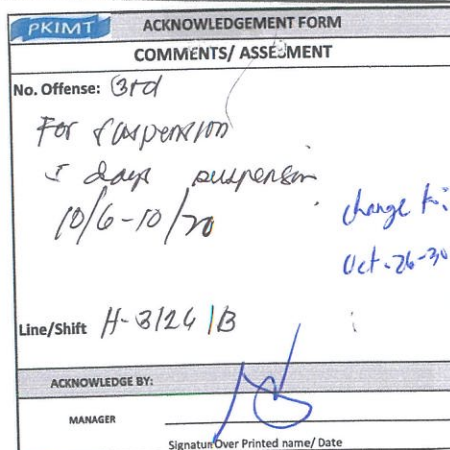 PKIMT
ACKNOWLEDGEMENT FORM
COMMENTS/ ASSESMENT
No. Offense: 3rd
For suspension
5 days suspension
10/6-10/20
change to:
Oct. 26-30
Line/Shift H-3124 /B
ACKNOWLEDGE BY:
MANAGER
Signatur Over Printed name/ Date